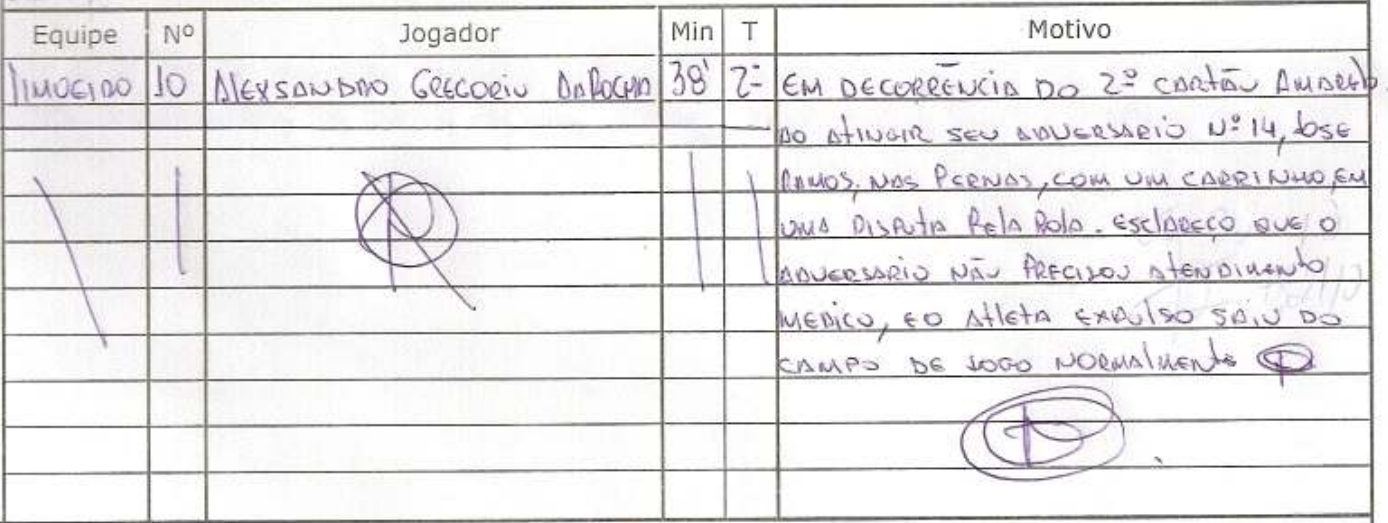 Equipe Nº Jogador Min T Motivo
LIMOEIRO 10 ALEXSANDRO GREGORIO DA ROCHA 38' 2º EM DECORRÊNCIA DO 2º CARTÃO AMARELO.
AO ATINGIR SEU ADVERSARIO Nº 14, JOSE
RAMOS, NAS PERNAS, COM UM CARRINHO, EM
UMA DISPUTA PELA BOLA. ESCLAREÇO QUE O
ADVERSARIO NÃO PRECISOU ATENDIMENTO
MEDICO, E O ATLETA EXPULSO SAIU DO
CAMPO DE JOGO NORMALMENTE